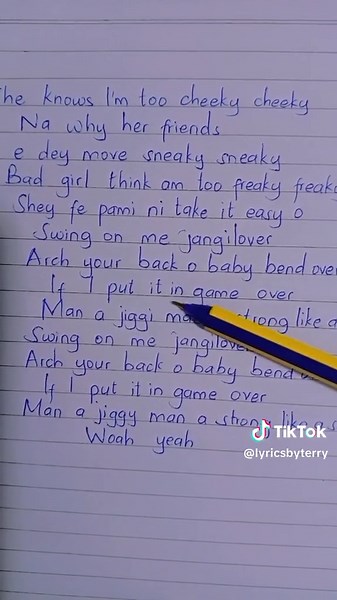 She knows I'm too cheeky cheeky
Na why her friends
e dey move sneaky sneaky
Bad girl think am too freaky
Shey fe pami ni take it easy o
Swing on me jangilover
Arch your back o baby bend over
If I put it in game over
Man a jiggi strong like a
Swing on me
Arch your back o baby bend
If I put it in game over
Man a jiggy man a strong like a
Woah yeah
TikTok
@lyricsbyterry